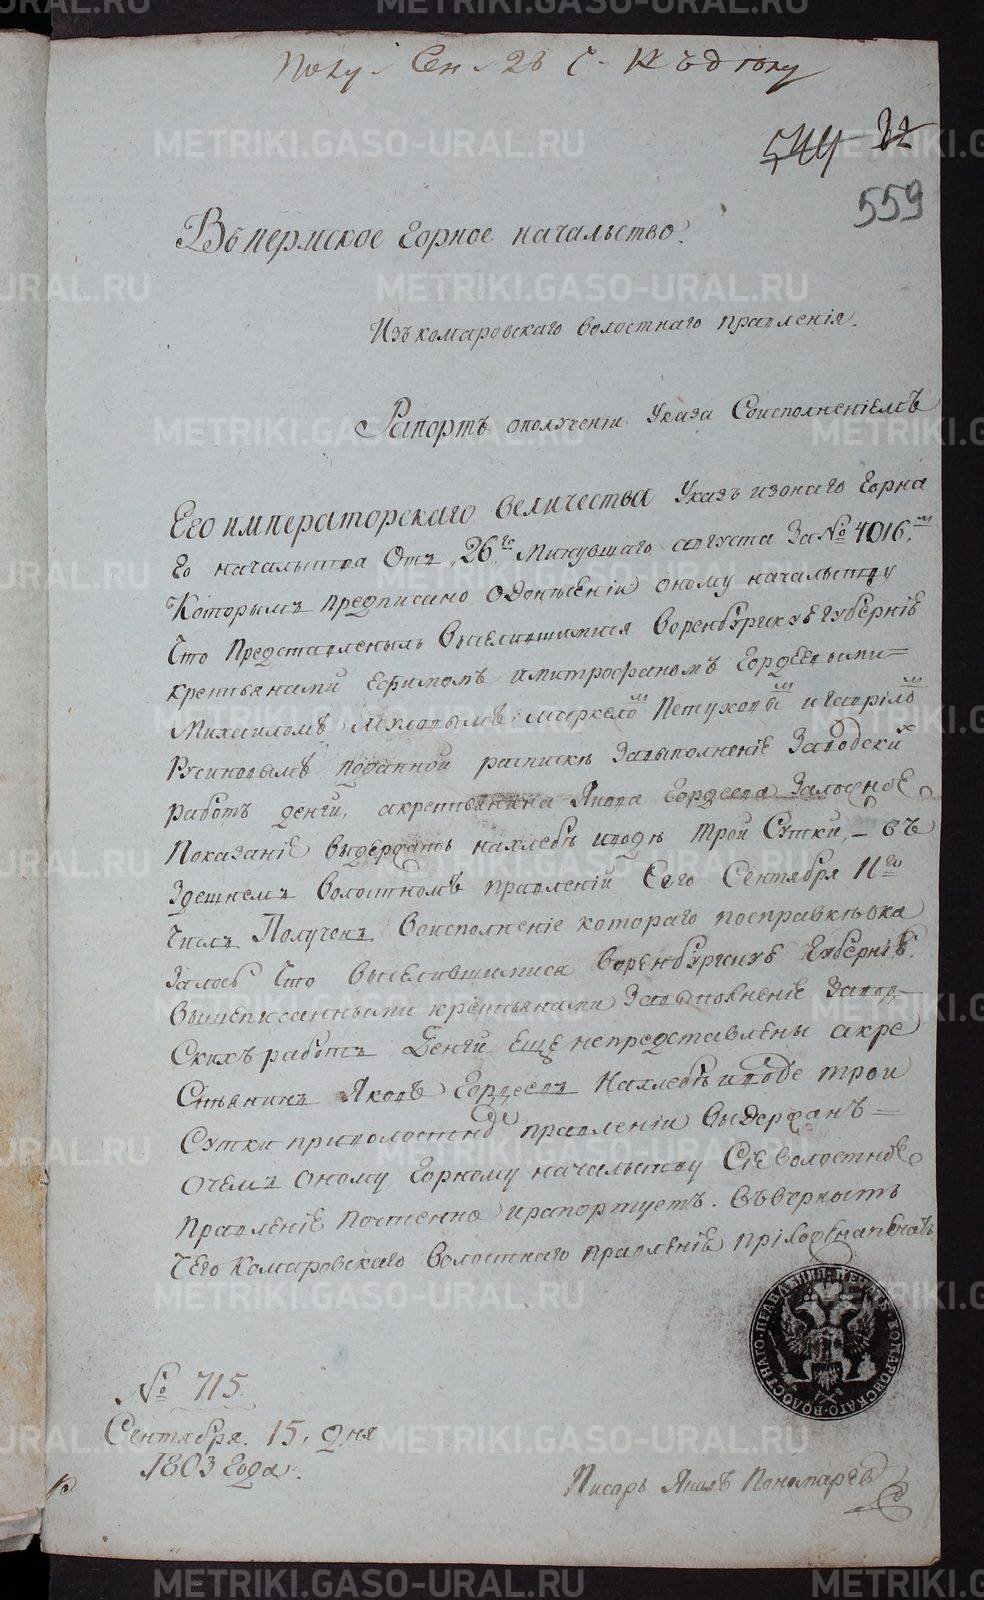 METRIKI.GASO-URAL.RU
Полу. Сен. 28 ч. Къ д᷉ году
544 22
559
Въ пермское Горное начальство.
Изъ комаровскаго волостнаго правленія.
Рапортъ ополученіи Указа Соисполненіемъ
Его императорскаго величества Указъ изонаго Горна
го начальства Отъ "26го" Минувшаго августа За № 4016м.
Которымъ предписано одонесеніи оному начальству
Что Представленыль выселившимися воренбургскуѣ губернїе
крестьянами ефимомъ имитрофаномъ Гордеевыми=
Михаиломъ маркело Петуховы игаврило
Русиновымъ поданной расписке Завыполненіе Заводскихъ
работъ денги, акрестьянина Якова Гордеева Заложное
Показаніе выдержать нахлебе иводе Трои Сутки, – въ
здешнемъ Волостномъ правленіи Сего Сентября 11го
Числъ Получен, Воисполненіе котораго посправке ока
залось Что выселившимися воренбургскуѣ Губернїе,
вышеписанными крестьянами Завыполнение Завод-
Скихъ работъ Денги Еще непредставлены акре
Стьянинъ Яковъ Гордеевъ Нахлебе иводе трои
Сутки приволостнѡ́ правленіи выдержанъ=
очемъ Оному Горному начальству Сїе волостное
Правленіе Почтенно ирапортуетъ. Въверность
Чего Комаровскаго Волостнаго правленіе приложена печать
№ 715.
Сентября. 15. дня
1803 года.
Писарь Яковъ Пономаревъ